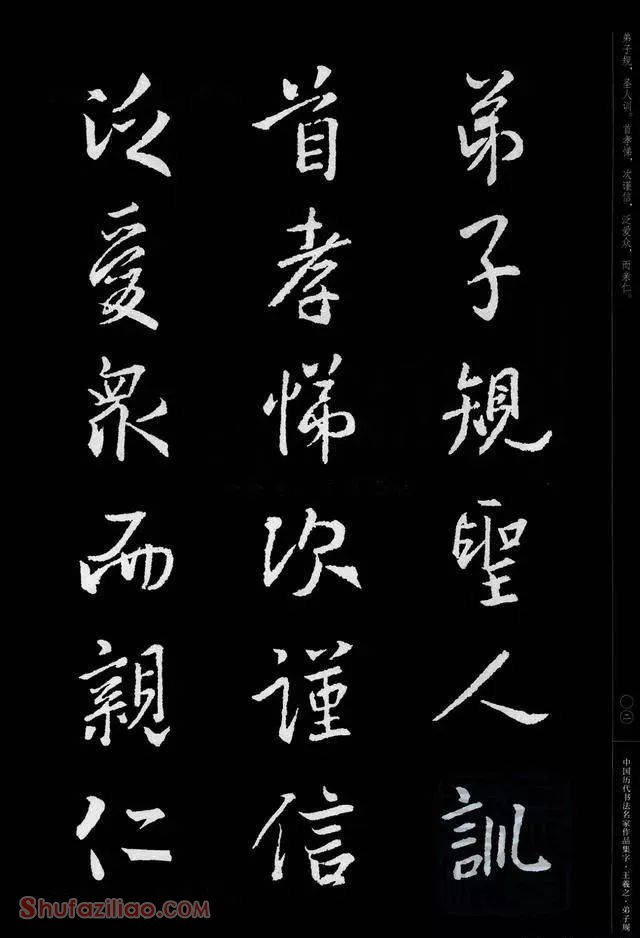 弟子规，圣人训。首孝悌，次谨信，泛爱众，而亲仁。
〇二
中国历代书法名家作品集字·王羲之·弟子规
弟子規聖人訓
首孝悌次謹信
泛愛眾而親仁
Shufaziliao.com